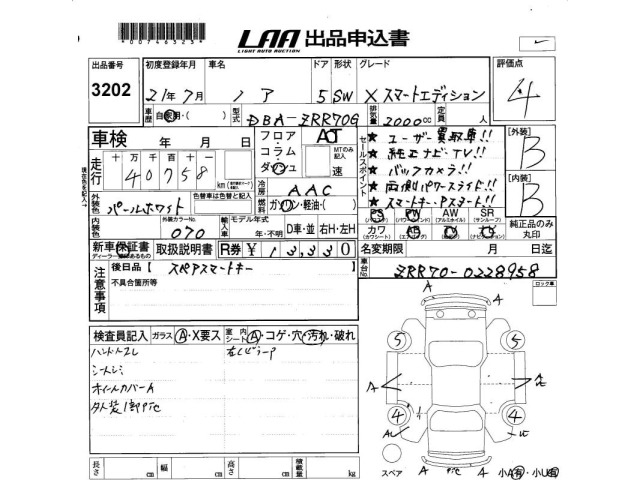 *00746323*
LAA 出品申込書
LIGHT AUTO AUCTION
出品番号 3202
初度登録年月 21年7月
車名 ノア
ドア 5
形状 SW
グレード X スマートエディション
評価点 4
車歴 自家用・( )
型式 DBA-ZRR70G
排気量 2000cc
定員 人
車検 年 月 日
フロア
コラム
ダッシュ
AT
MTのみ記入
速
セールスポイント
★ ユーザー買取車!!
★ 純正ナビ・TV!!
★ バックカメラ!!
★ 両側パワースライド!!
★ スマートキー・Pスタート!!
[外装] B
[内装] B
走行
十万千百十
40758 km
現在色を記入→
外装色 パールホワイト
色替車は色替と記入
冷房 AAC
燃料 ガソリン・軽油・( )
内装色
外装カラーNo. 070
輸入車
モデル年式
年・不明
D車・並
右H・左H
PS PW AW SR
(パワーステ) (サンルーフ)
カワ AB
純正品のみ丸印
新車保証書
ディーラー印のあるもの
取扱説明書
R券 ¥ 13,330
名変期限 月 日迄
車台No. ZRR70-0228958
注意事項
後日品【 スペアスマートキー
不具合箇所等
ロック車
検査員記入
ガラス A・X要ス
室内シート A・コゲ・穴・汚れ・破れ
ハンドルスレ
シートシミ
ホイールカバーA
A
A
5
5
A
A
4
4
A
A
スペア
小A有・小U有
長さ cm
幅 cm
高さ cm
積載量 kg